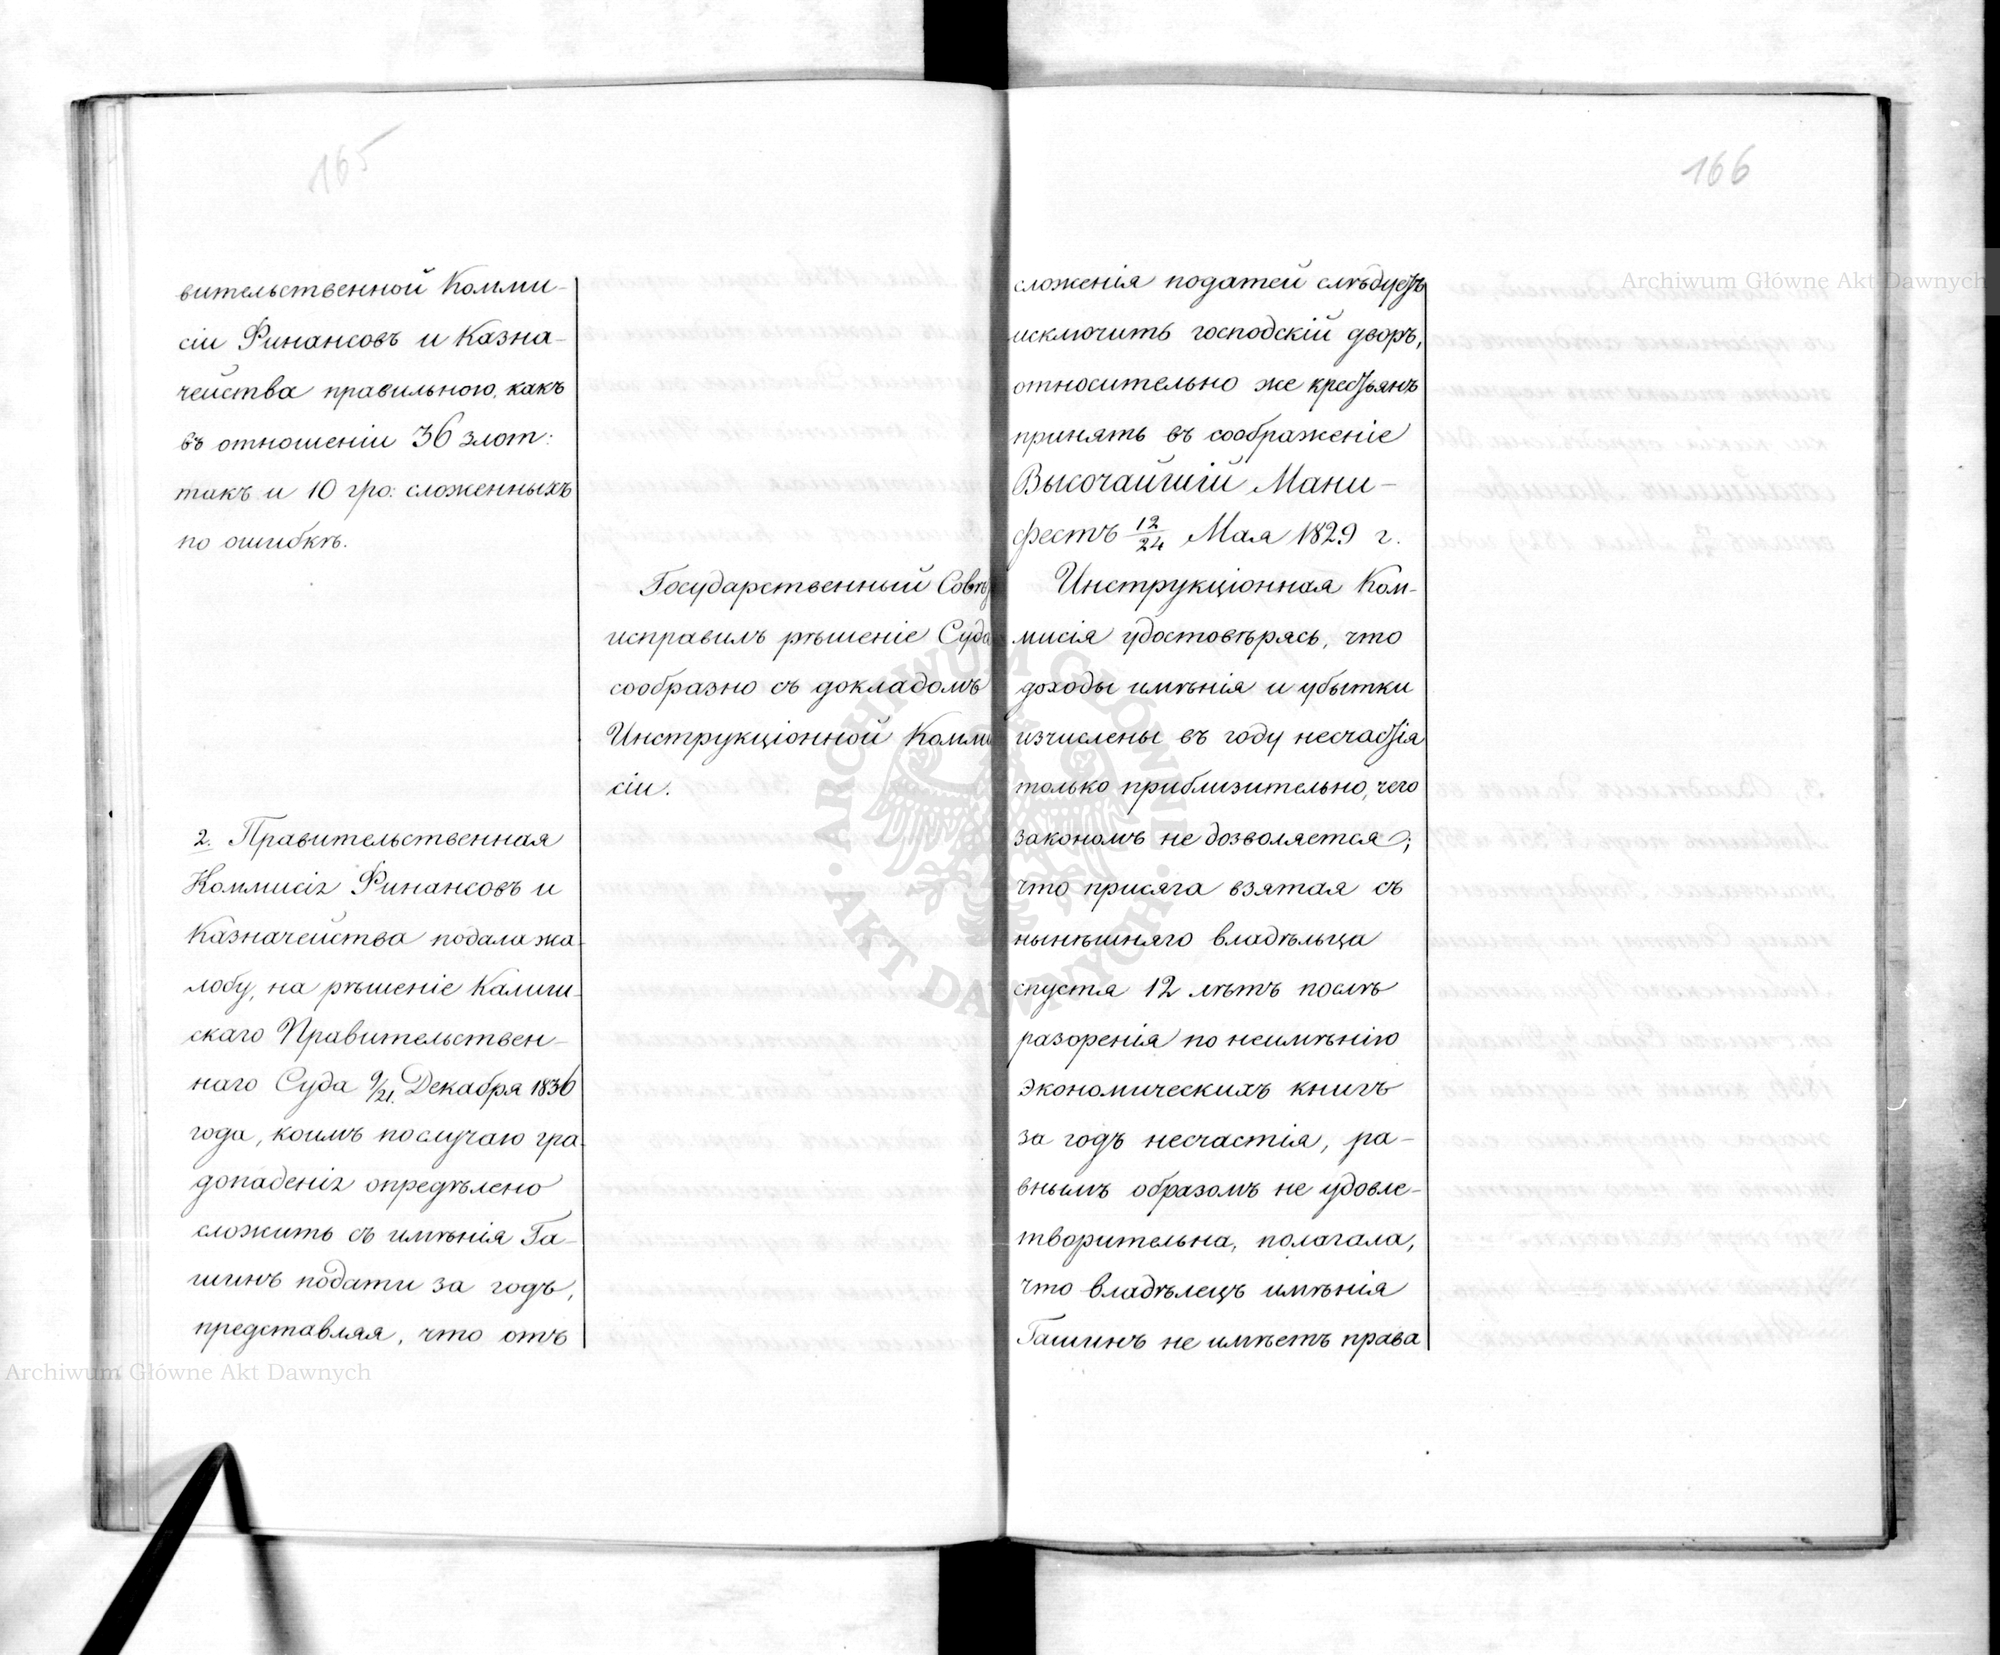 165
вительственной Комми-
сіи Финансовъ и Казна-
чейства правильною, какъ
въ отношеніи 36 злот:
такъ и 10 гро: сложенныхъ
по ошибкѣ.
Государственный Совѣтъ
исправилъ рѣшеніе Суда
сообразно съ докладомъ
Инструкціонной Комми
сіи.
2. Правительственная
Коммисія Финансовъ и
Казначейства подала жа-
лобу, на рѣшеніе Калиш-
скаго Правительствен-
наго Суда 9/21. Декабря 1836
года, коимъ по случаю гра-
допаденія опредѣлено
сложить съ имѣнія Га-
шинъ подати за годъ,
представляя, что отъ
166
сложенія податей слѣдуетъ
исключить господскій дворъ,
относительно же крестьянъ
принять въ соображеніе
Высочайшій Мани-
фестъ 12/24 Мая 1829 г.
Инструкціонная Ком-
мисія удостовѣрясь, что
доходы имѣнія и убытки
изчислены въ году несчастія
только приблизительно, чего
закономъ не дозволяется;
что присяга взятая съ
нынѣшняго владѣльца
спустя 12 лѣтъ послѣ
разоренія по неимѣнію
экономическихъ книгъ
за годъ несчастія, ра-
внымъ образомъ не удовле-
творительна, полагала,
что владѣлецъ имѣнія
Гашинъ не имѣетъ права
Archiwum Główne Akt Dawnych
Archiwum Główne Akt Dawnych
ARCHIWUM GŁÓWNE AKT DAWNYCH